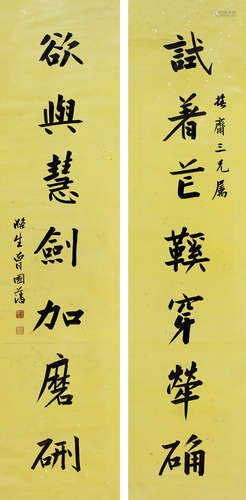 試着芒鞵穿犖确
梅齋三兄属
欲與慧劍加磨硎
滌生曾國藩